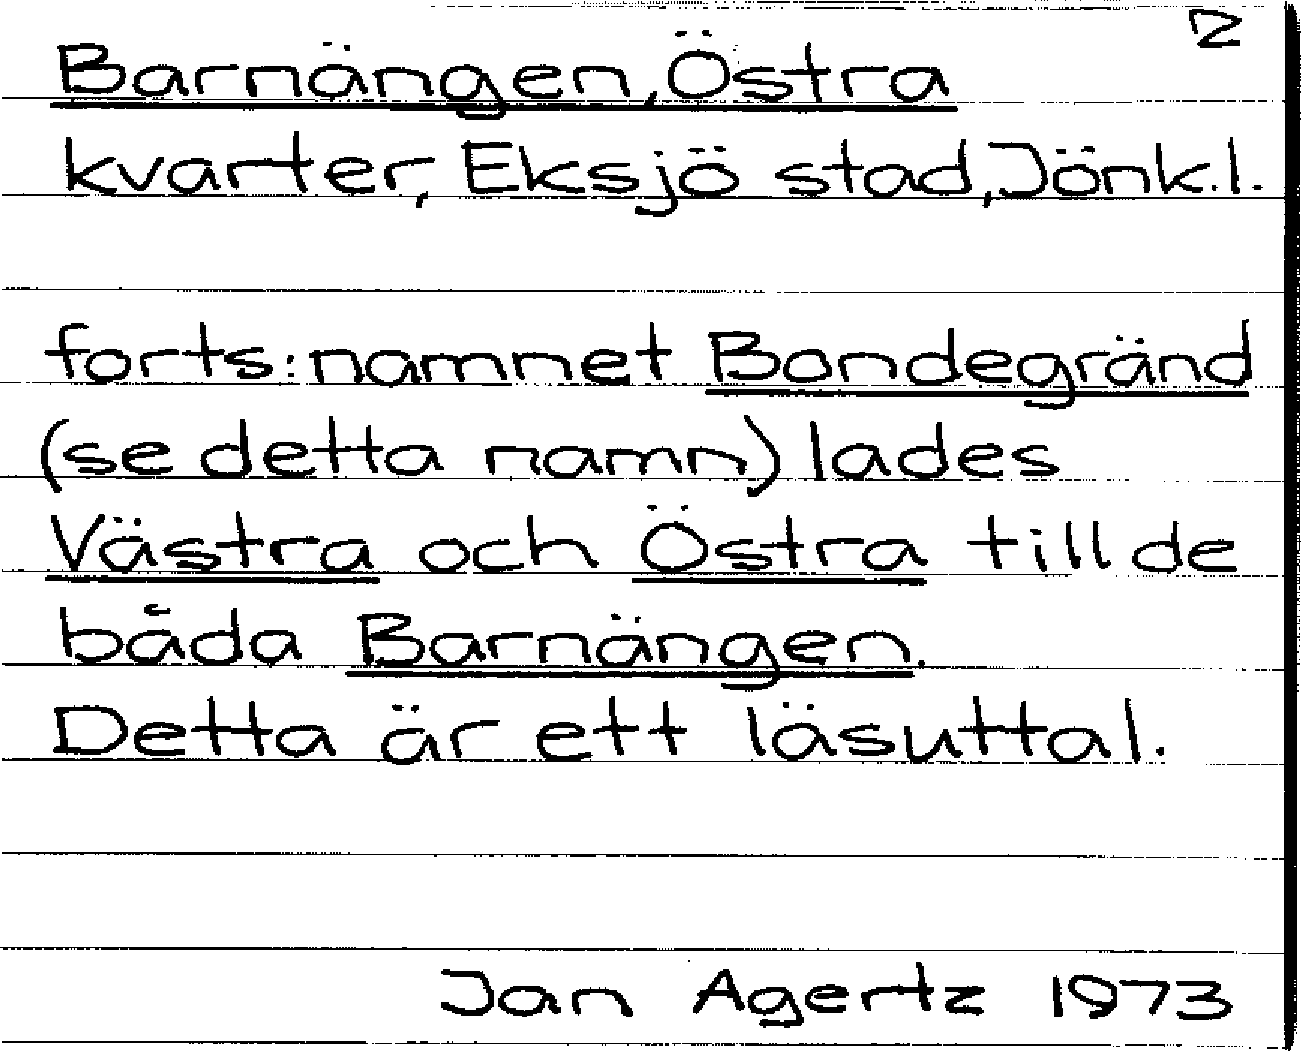 2
Barnängen, Östra
kvarter, Eksjö stad, Jönk.l.
forts: namnet Bondegränd
(se detta namn) lades
Västra och Östra till de
båda Barnängen.
Detta är ett läsuttal.
Jan Agertz 1973